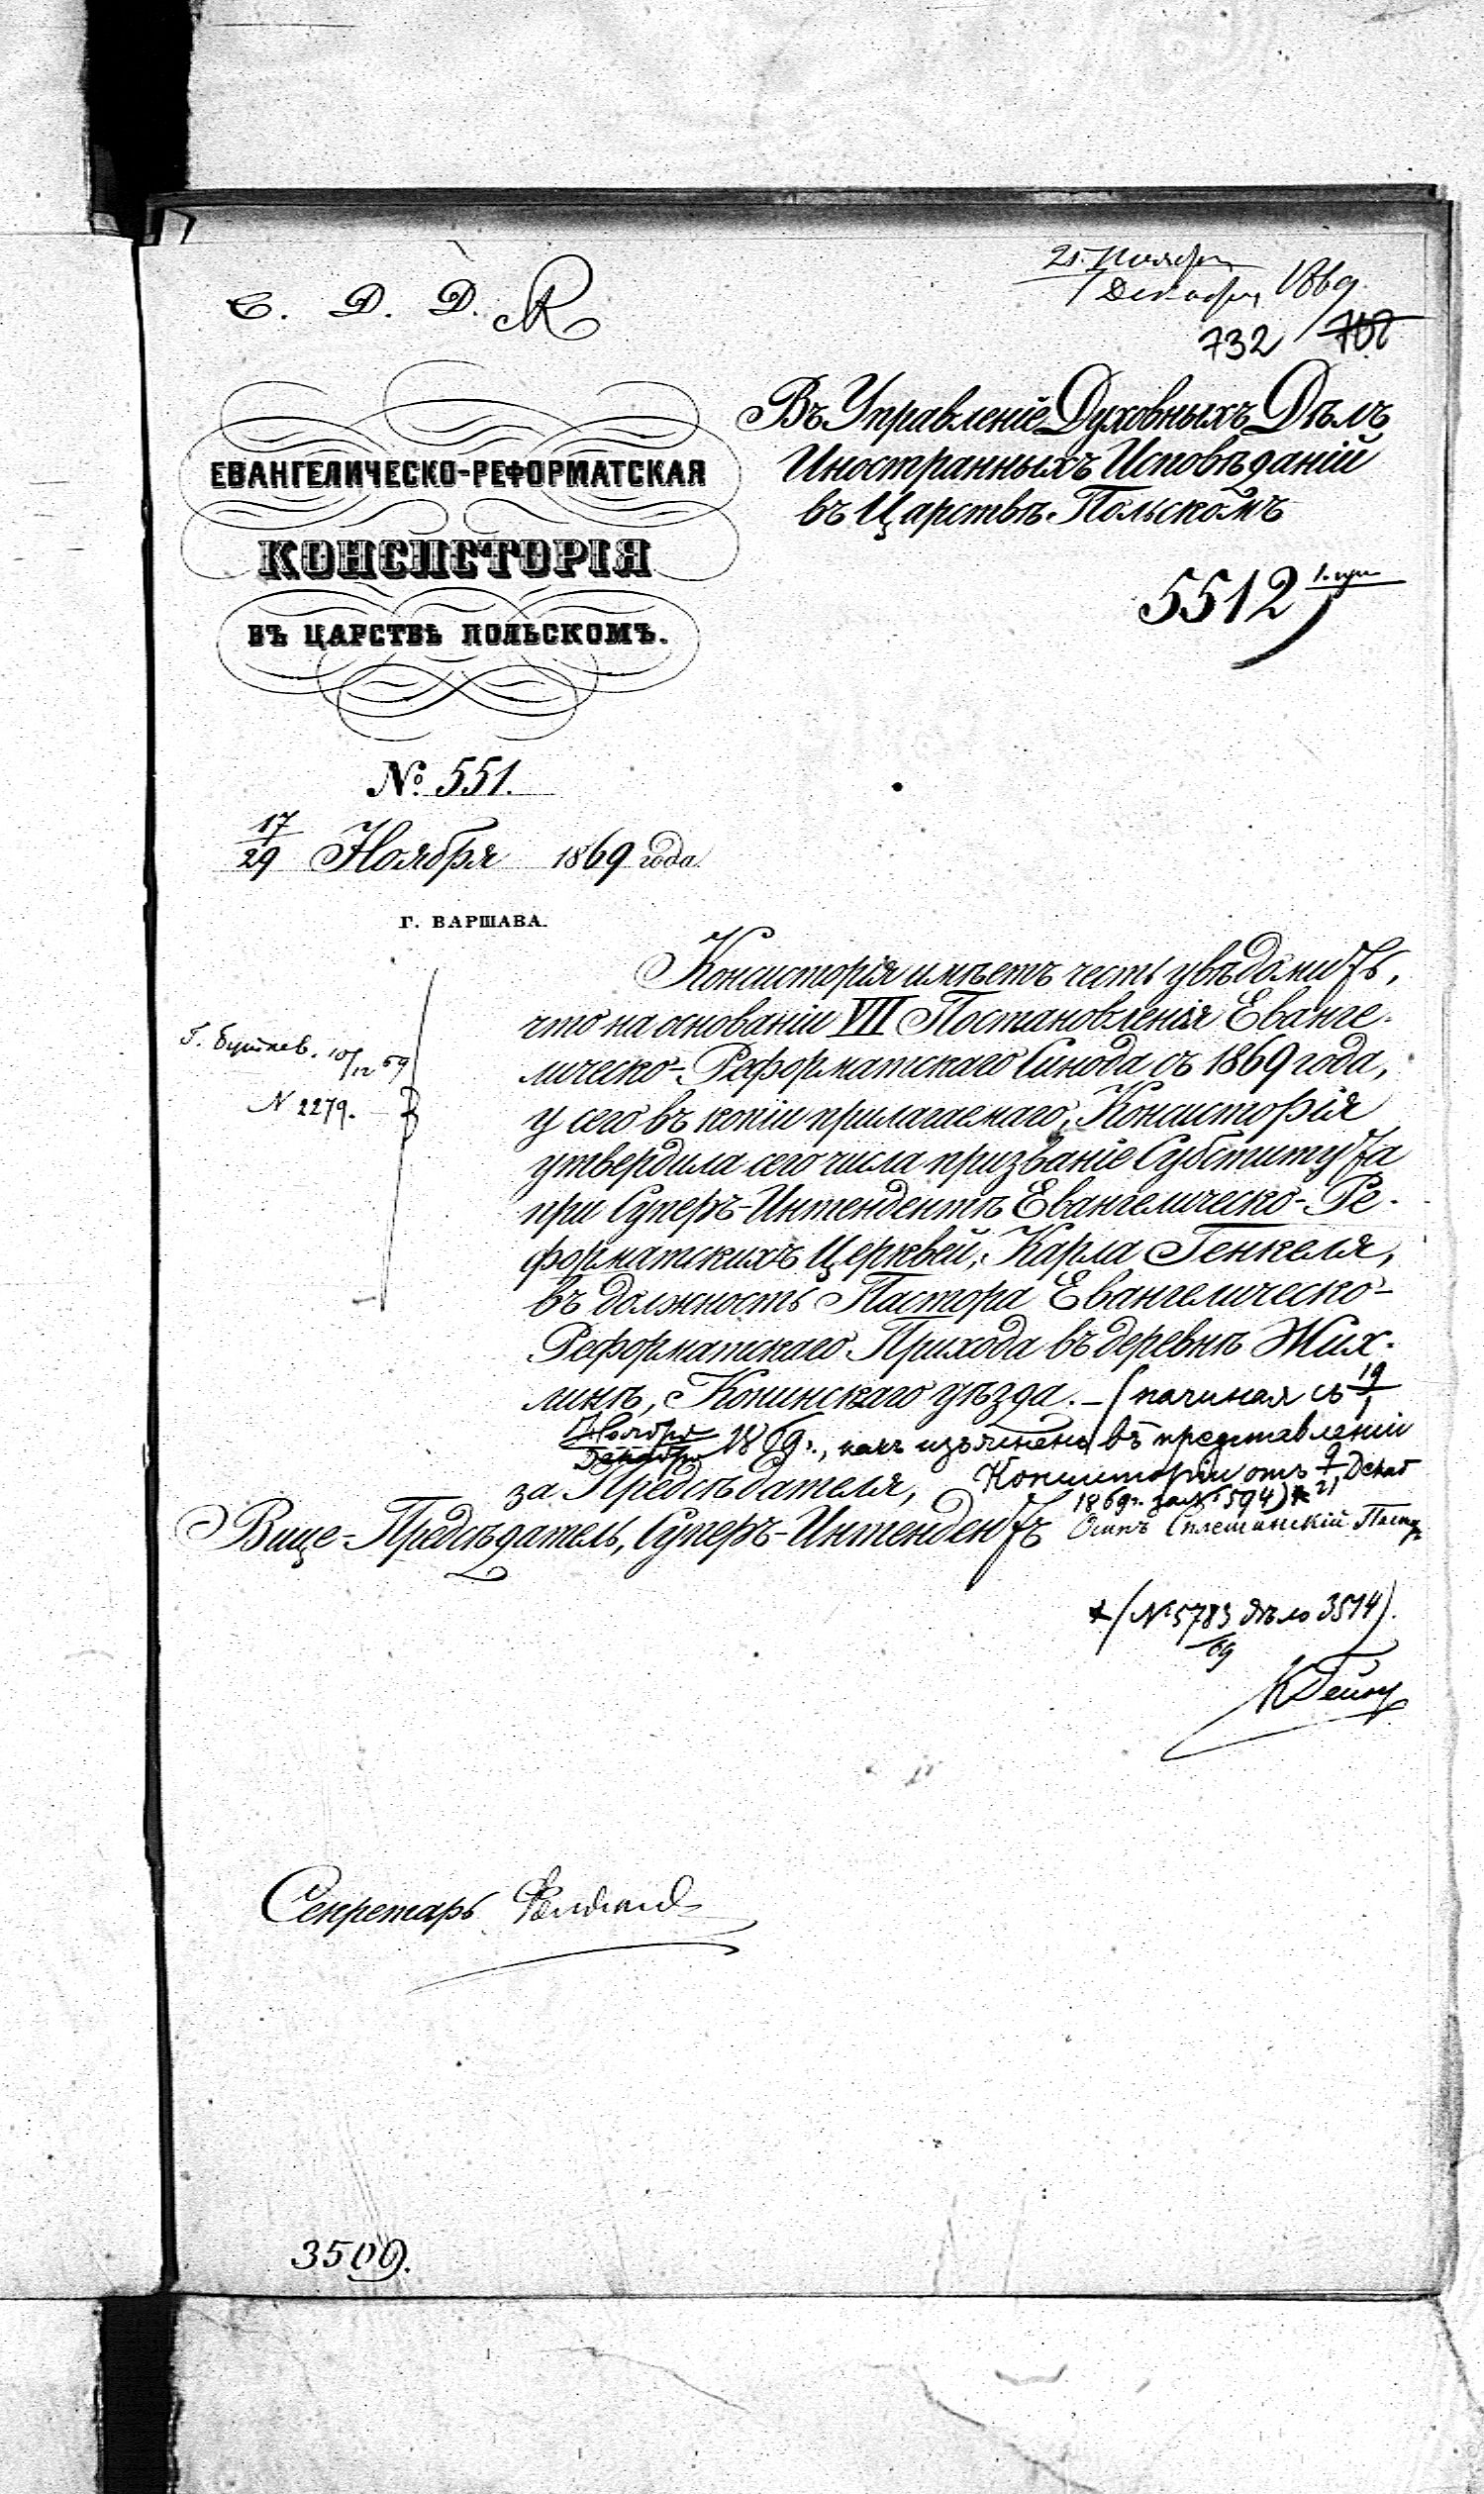 С. Д. Д.
ЕВАНГЕЛИЧЕСКО-РЕФОРМАТСКАЯ
КОНСИСТОРІЯ
ВЪ ЦАРСТВѢ ПОЛЬСКОМЪ.
№ 551.
17/29 Ноября 1869 года.
Г. ВАРШАВА.
Декабря 1869.
732 / 702
Въ Управленіе Духовныхъ Дѣлъ
Иностранныхъ Исповѣданій
въ Царствѣ Польскомъ
5512
10/12 69
N 2279.
Консисторія имѣетъ честь увѣдомить,
что на основаніи VII Постановленія Еванге-
лическо-Реформатскаго Синода съ 1869 года,
у сего въ копіи прилагаемаго, Консисторія
утвердила сего числа призваніе Субститута
при Суперъ-Интендентѣ Евангелическо-Ре-
форматскихъ Церквей, Карла Генкеля,
въ должность Пастора Евангелическо-
Реформатскаго Прихода въ деревнѣ Жих-
линѣ, Конинскаго уѣзда. – (начиная съ 19/1
Ноября/Декабря 1869 г., какъ изъяснено въ представленіи
Консисторіи отъ 9/21 Декаб
1869 г. за № 594)*
за Предсѣдателя,
Вице-Предсѣдатель, Суперъ-Интендентъ
*(№ 5783/69 дѣло 3514).
Секретарь
3509.